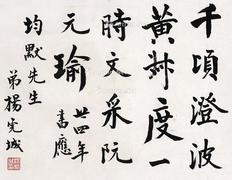 千頃澄波
黃叔度一
時文采阮
元瑜
廿四年
書應
均默先生
弟楊虎城